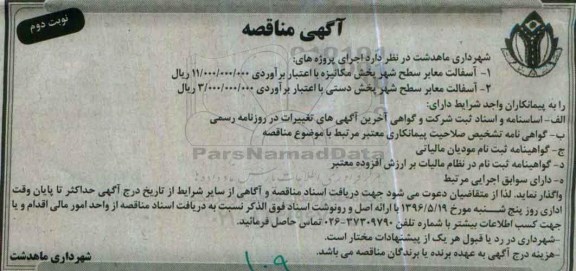 نوبت دوم
آگهی مناقصه
شهرداری ماهدشت در نظر دارد اجرای پروژه های:
۱- آسفالت معابر سطح شهر پخش مکانیزه با اعتبار برآوردی ۱۱/۰۰۰/۰۰۰/۰۰۰ ریال
۲- آسفالت معابر سطح شهر پخش دستی با اعتبار برآوردی ۳/۰۰۰/۰۰۰/۰۰۰ ریال
را به پیمانکاران واجد شرایط دارای:
الف- اساسنامه و اسناد ثبت شرکت و گواهی آخرین آگهی های تغییرات در روزنامه رسمی
ب- گواهی نامه تشخیص صلاحیت پیمانکاری معتبر مرتبط با موضوع مناقصه
ج- گواهینامه ثبت نام مودیان مالیاتی
ParsNamadData
د- گواهینامه ثبت نام در نظام مالیات بر ارزش افزوده معتبر
ه- دارای سوابق اجرایی مرتبط
واگذار نماید. لذا از متقاضیان دعوت می شود جهت دریافت اسناد مناقصه و آگاهی از سایر شرایط از تاریخ درج آگهی حداکثر تا پایان وقت
اداری روز پنج شنبه مورخ ۱۳۹۶/۵/۱۹ با ارائه اصل و رونوشت اسناد فوق الذکر نسبت به دریافت اسناد مناقصه از واحد امور مالی اقدام و یا
جهت کسب اطلاعات بیشتر با شماره تلفن ۳۷۳۰۹۷۹۰-۰۲۶ تماس حاصل فرمائید.
-شهرداری در رد یا قبول هر یک از پیشنهادات مختار است.
-هزینه درج آگهی به عهده برنده یا برندگان مناقصه می باشد.
شهرداری ماهدشت
۱۰۹